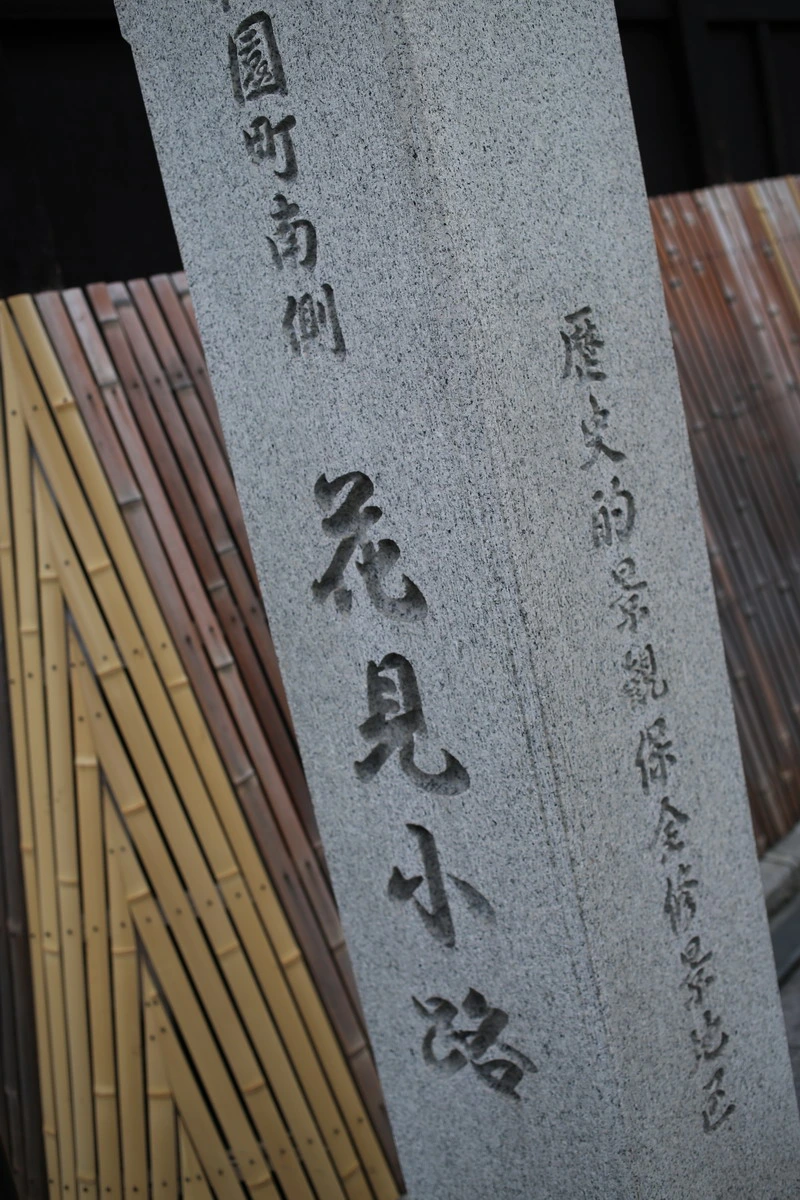 園町南側
花見小路
歴史的景観保全修景地区